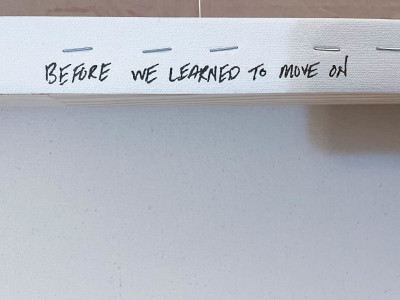 BEFORE WE LEARNED TO MOVE ON